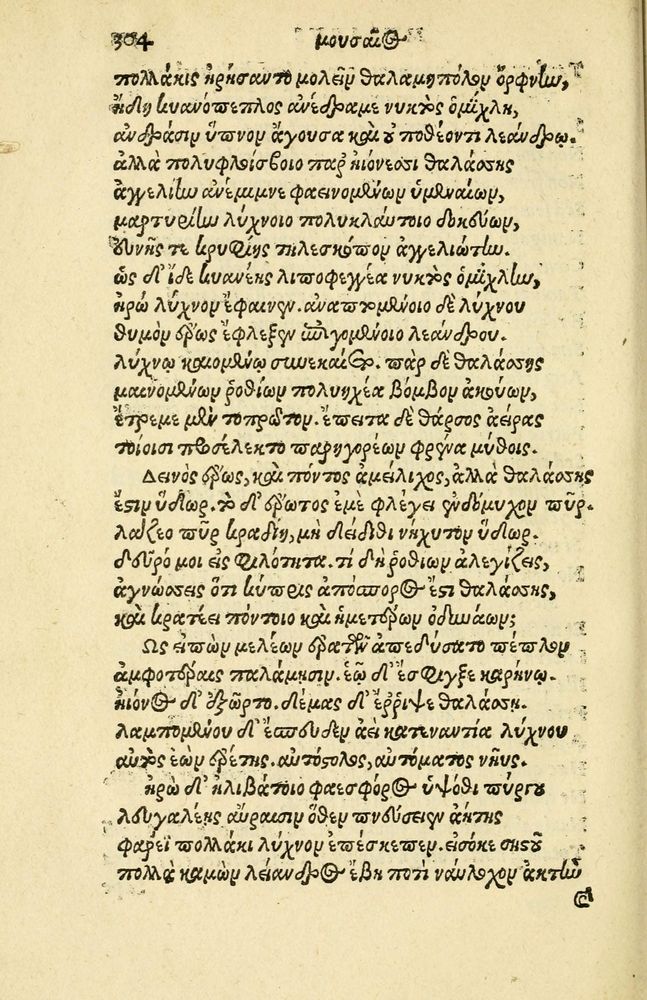 304 μουσαῖος
πολλάκις ἠρήσαντο μολεῖν θαλαμηπόλον ὄρφνην,
ἤδη κυανόπεπλος ἀνέδραμε νυκτὸς ὁμίχλη,
ἀνδράσιν ὕπνον ἄγουσα καὶ οὐ ποθέοντι λεάνδρῳ.
ἀλλὰ πολυφλοίσβοιο παρ' ἠϊόνεσσι θαλάσσης
ἀγγελίην ἀνέμιμνε φαεινομένων ὑμεναίων,
μαρτυρίην λύχνοιο πολυκλαύτοιο δοκεύων,
εὐνῆς τε κρυφίης τηλεσκόπον ἀγγελιώτην.
ὡς δ' ἴδε κυανέης λιποφεγγέα νυκτὸς ὁμίχλην,
ἡρὼ λύχνον ἔφαινεν. ἀναπτομένοιο δὲ λύχνου
θυμὸν ἔρως ἔφλεξεν ἐπειγομένοιο λεάνδρου.
λύχνῳ καιομένῳ συνεκαίετο. παρ δὲ θαλάσσης
μαινομένων ῥοθίων πολυηχέα βόμβον ἀκούων,
ἔτρεμε μὲν τοπρῶτον. ἔπειτα δὲ θάρσος ἀείρας
τοίοισι προσέλεκτο παρηγορέων φρένα μύθοις.
Δεινὸς ἔρως, καὶ πόντος ἀμείλιχος, ἀλλὰ θαλάσσης
ἔστιν ὕδωρ. τὸ δ' ἔρωτος ἐμὲ φλέγει ἐνδόμυχον πῦρ.
λάζεο πῦρ κραδίη, μὴ δείδιθι νήχυτον ὕδωρ.
δεῦρό μοι εἰς φιλότητα. τί δὴ ῥοθίων ἀλεγίζεις,
ἀγνώσσεις ὅτι κύπρις ἀπόσπορος ἐστὶ θαλάσσης,
καὶ κρατέει πόντοιο καὶ ἡμετέρων ὀδυνάων;
Ως εἰπὼν μελέων ἐρατῶν ἀπεδύσατο πέπλον
ἀμφοτέραις παλάμῃσιν. ἑῷ δ' ἔσφιγξε καρήνῳ.
ἠϊόνος δ' ἐξῶρτο. δέμας δ' ἔρριψε θαλάσσῃ.
λαμπομένου δ' ἔσπευδεν ἀεὶ κατεναντία λύχνου
αὐτὸς ἐὼν ἐρέτης. αὐτόστολος, αὐτόματος νῆυς.
ἡρὼ δ' ἠλιβάτοιο φαεσφόρος ὑψόθι πύργου
λευγαλέης αὔραισιν ὅθεν πνεύσειεν ἀήτης
φάρεϊ πολλάκι λύχνον ἐπέσκεπεν. εἰσόκε σηστοῦ
πολλὰ καμὼν λείανδρος ἔβη ποτὶ ναύλοχον ἀκτὴν